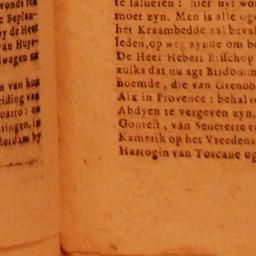 vonds ten
e Beplaa-
by de Heer
van Huye-
lwagen na
n van hun
eiding van
quarto: en
tringen, in
sterdam by
te salueren : hier uyt wo
moet zyn. Men is alle oge
het Kraambedde zal beval
leden, op weg zynde om be
De Heer Hebert Bisschop
zulks dat nu agt Bisdomm
noemde, die van Grenob
Aix in Provence : behalve
Abdyen te vergeven zyn.
Gontest, van Seneterre en
Kamerik op het Vreedens
Hartogin van Toscane og